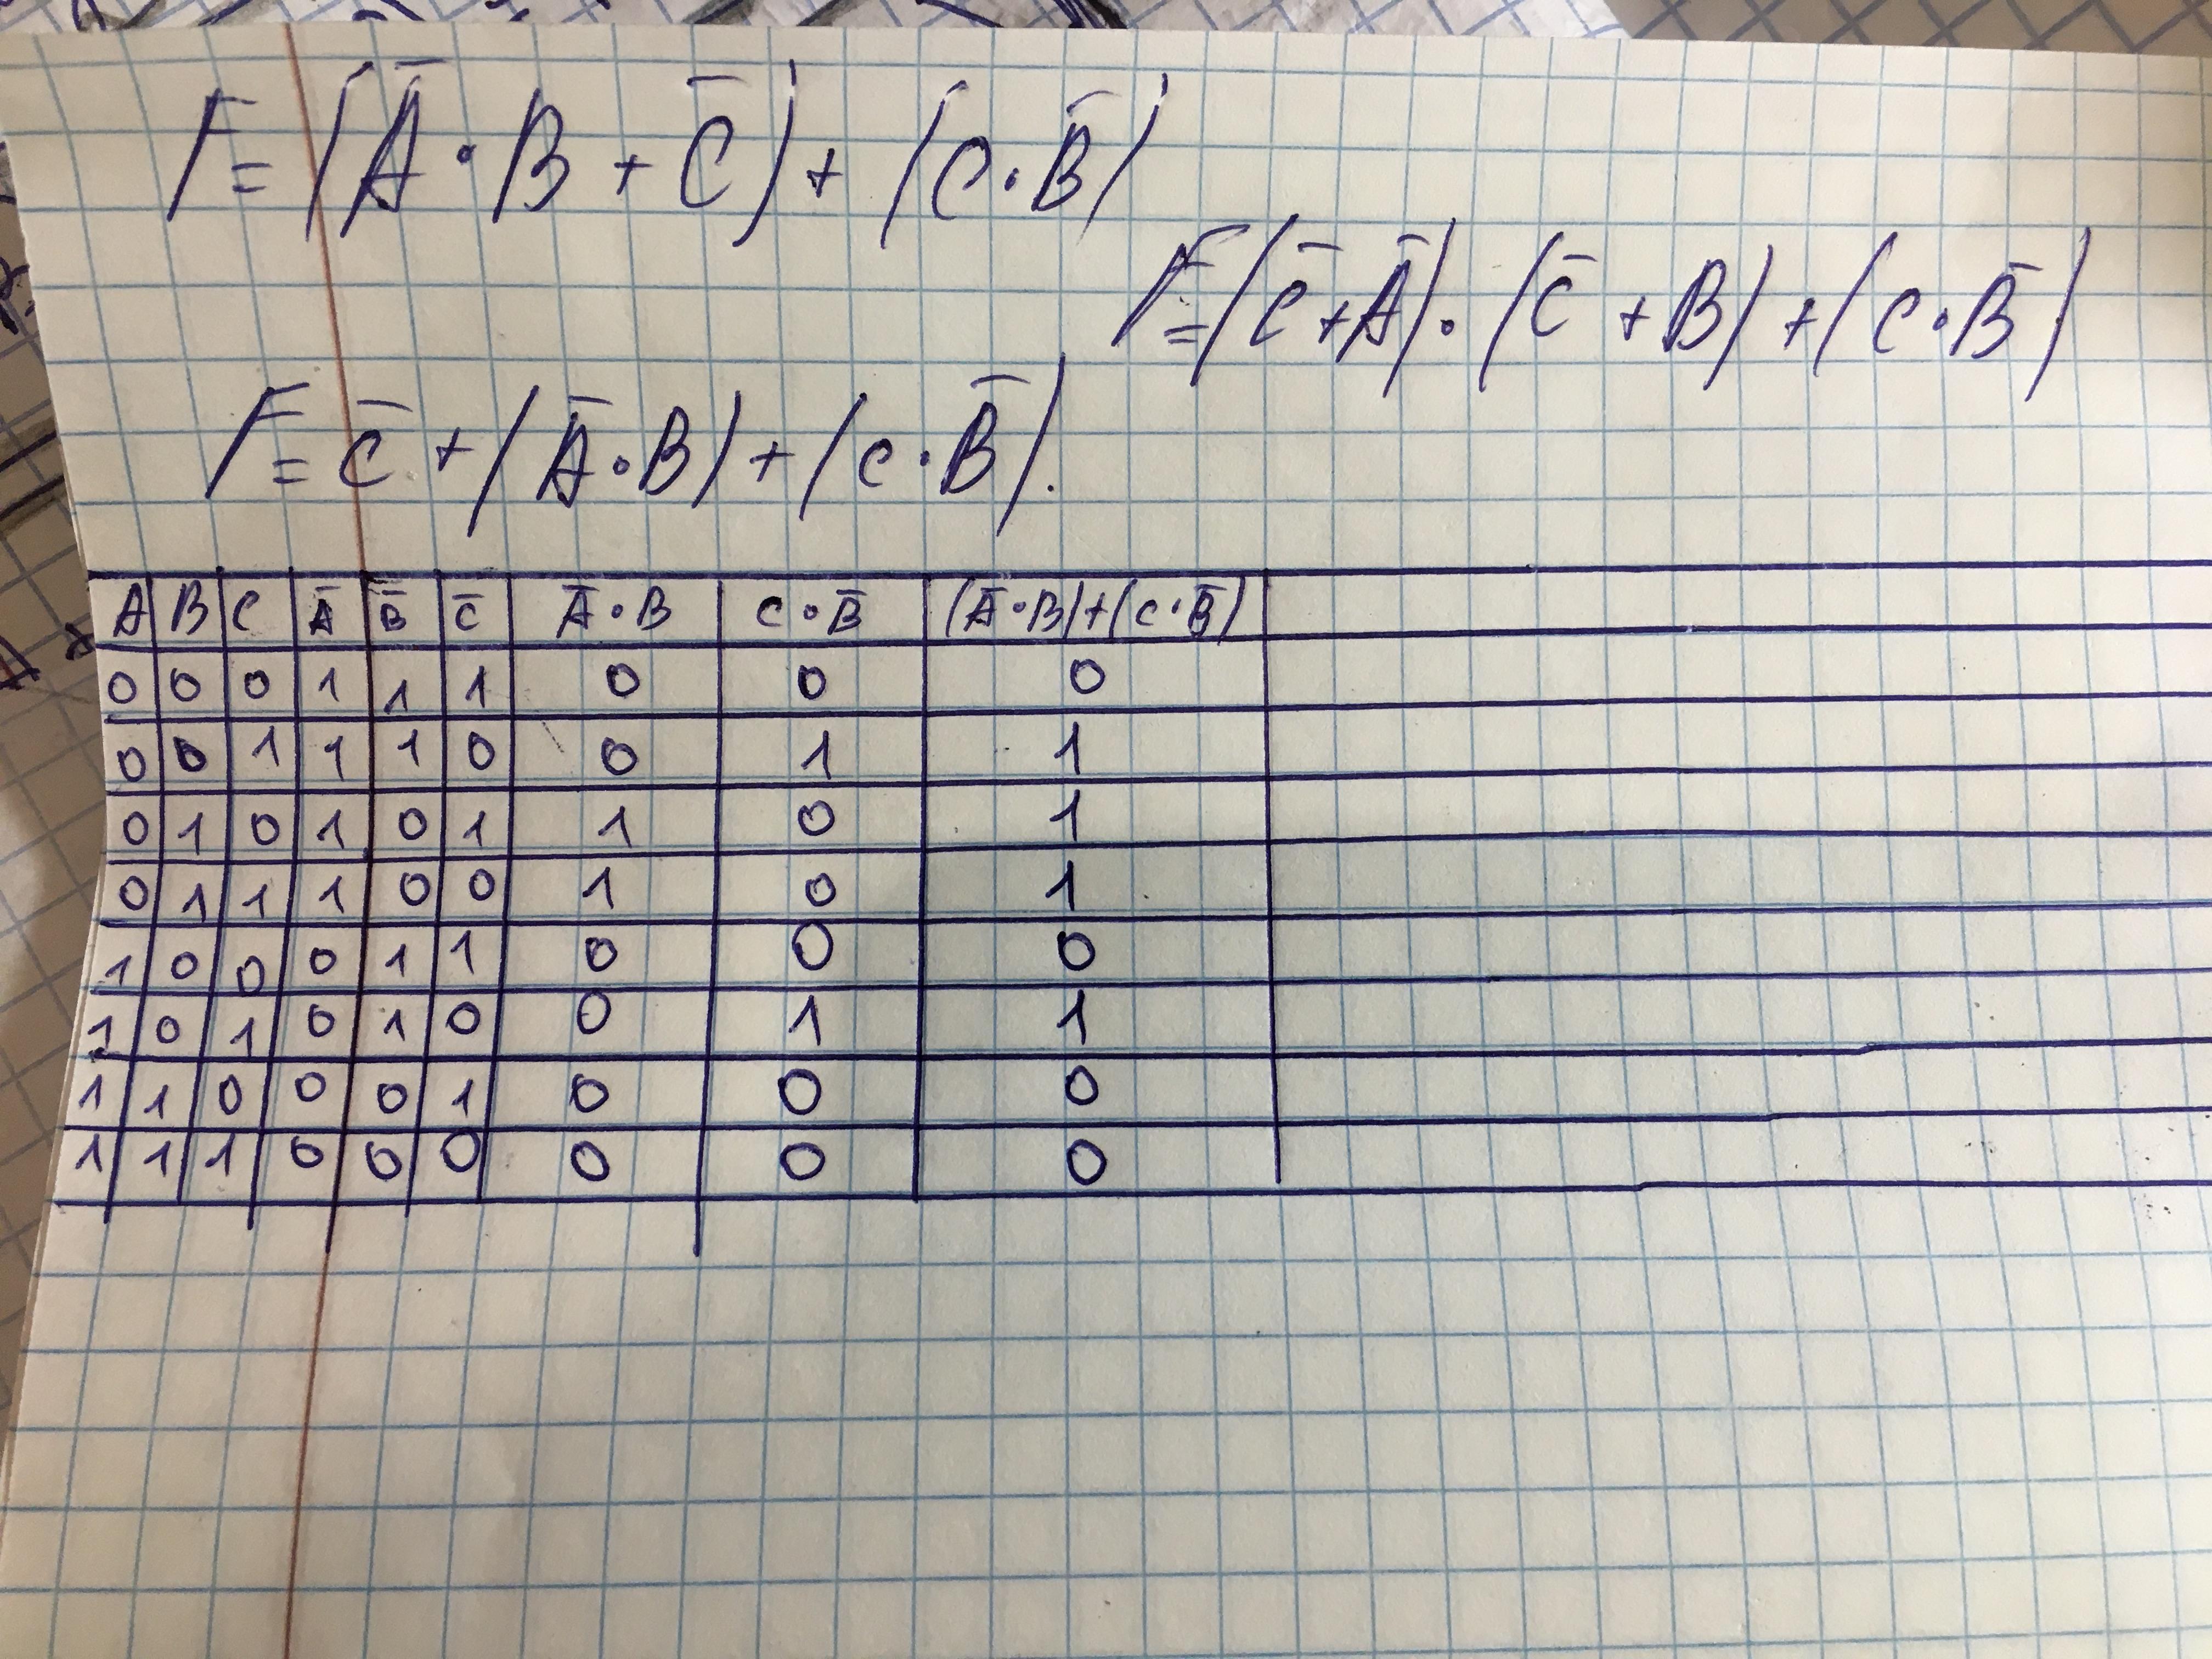 F=(A̅·B+C̅)+(C·B̅)
F=(C̅+A̅)·(C̅+B)+(C·B̅)
F=C̅+(A̅·B)+(C·B̅).
A B C A̅ B̅ C̅ A̅·B C·B̅ (A̅·B)+(C·B̅)
0 0 0 1 1 1 0 0 0
0 0 1 1 1 0 0 1 1
0 1 0 1 0 1 1 0 1
0 1 1 1 0 0 1 0 1
1 0 0 0 1 1 0 0 0
1 0 1 0 1 0 0 1 1
1 1 0 0 0 1 0 0 0
1 1 1 0 0 0 0 0 0